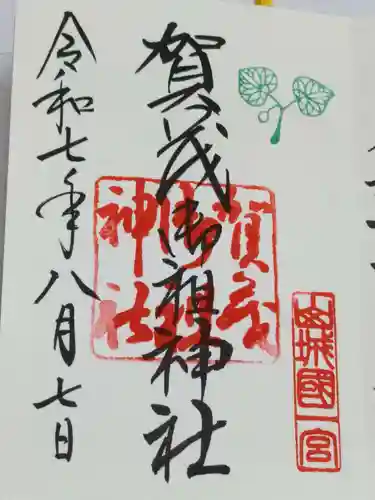 賀茂御祖神社
令和七年八月七日
賀茂
御祖
神社
山城國
一宮